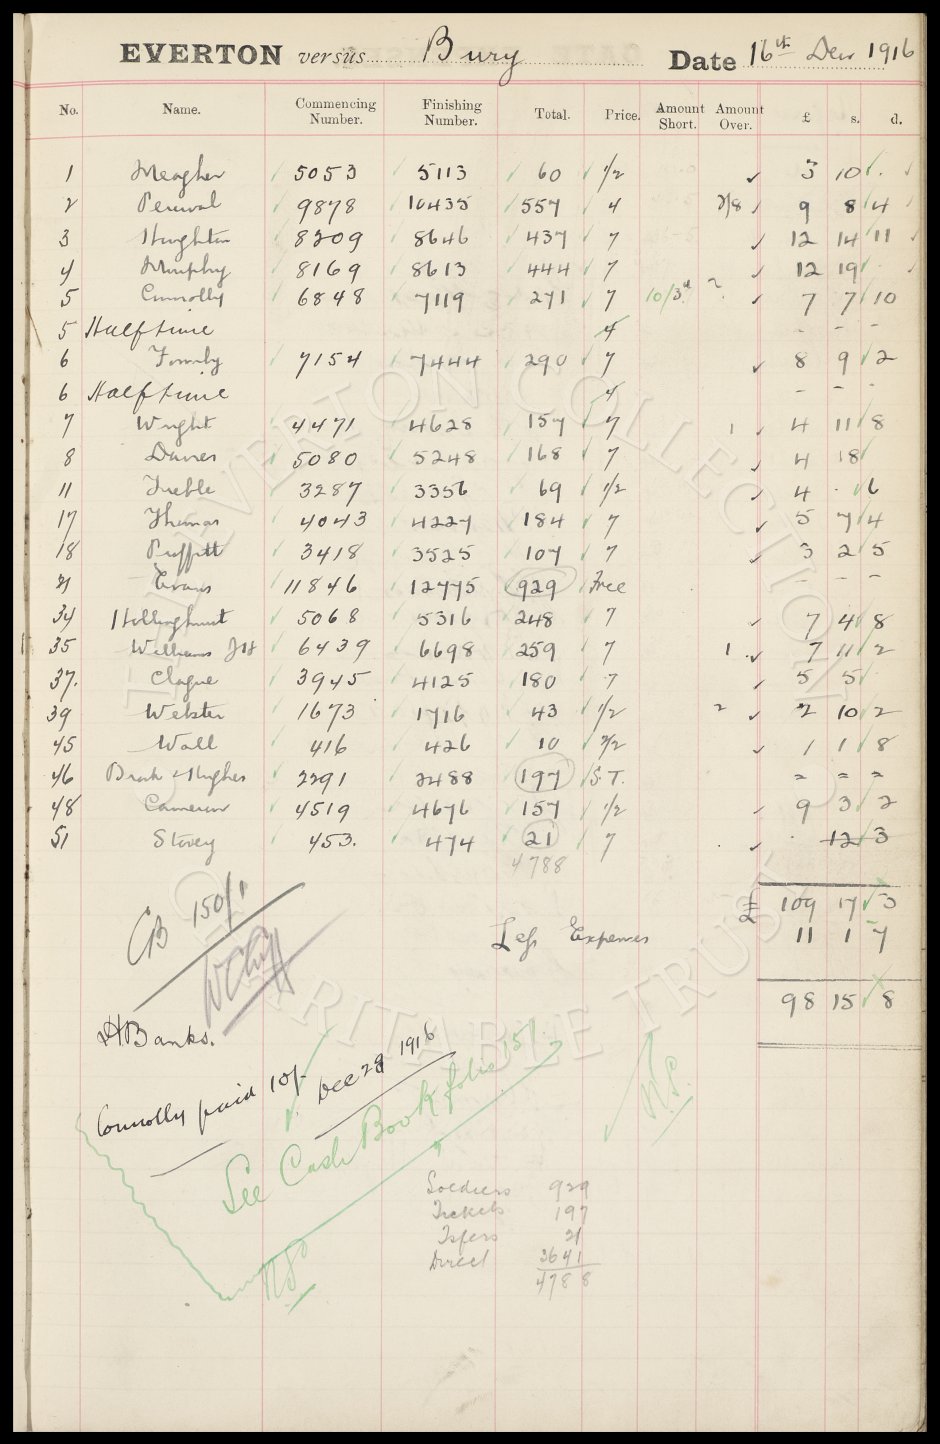 EVERTON versus Bury Date 16th Decr 1916
No. Name. Commencing Number. Finishing Number. Total. Price. Amount Short. Amount Over. £ s. d.
1 Meagher 5053 5113 60 1/2 3 10 .
2 Percival 9878 10435 557 4 2/8 9 8 4
3 Houghton 8209 8646 437 7 12 14 11
4 Murphy 8169 8613 444 7 12 19
5 Connolly 6848 7119 271 7 10/3d 2 7 7 10
5 Half time 4 - - -
6 Formby 7154 7444 290 7 8 9 2
6 Half time 4 - - -
7 Wright 4471 4628 157 7 1 4 11 8
8 Davies 5080 5248 168 7 4 18
11 Treble 3287 3356 69 1/2 4 . 6
17 Thomas 4043 4227 184 7 5 7 4
18 Proffitt 3418 3525 107 7 3 2 5
21 Evans 11846 12775 929 Free - - -
34 Hollinghurst 5068 5316 248 7 7 4 8
35 Williams JH 6439 6698 259 7 1 7 11 2
37. Clague 3945 4125 180 7 5 5
39 Webster 1673 1716 43 1/2 2 2 10 2
45 Wall 416 426 10 2/2 1 1 8
46 Brook & Hughes 2291 2488 197 S.T. = = =
48 Cameron 4519 4676 157 1/2 9 3 2
51 Stovey 453. 474 21 7 . 12 3
4788
£ 109 17 3
CB 150/1
Less Expenses 11 1 7
98 15 8
HBanks.
Connolly paid 10/- Dec 28 1916
See Cash Book folio 151.
Soldiers 929
Tickets 197
Tsfers 21
Direct 3641
4788
EVERTON COLLECTION
CHARITABLE TRUST